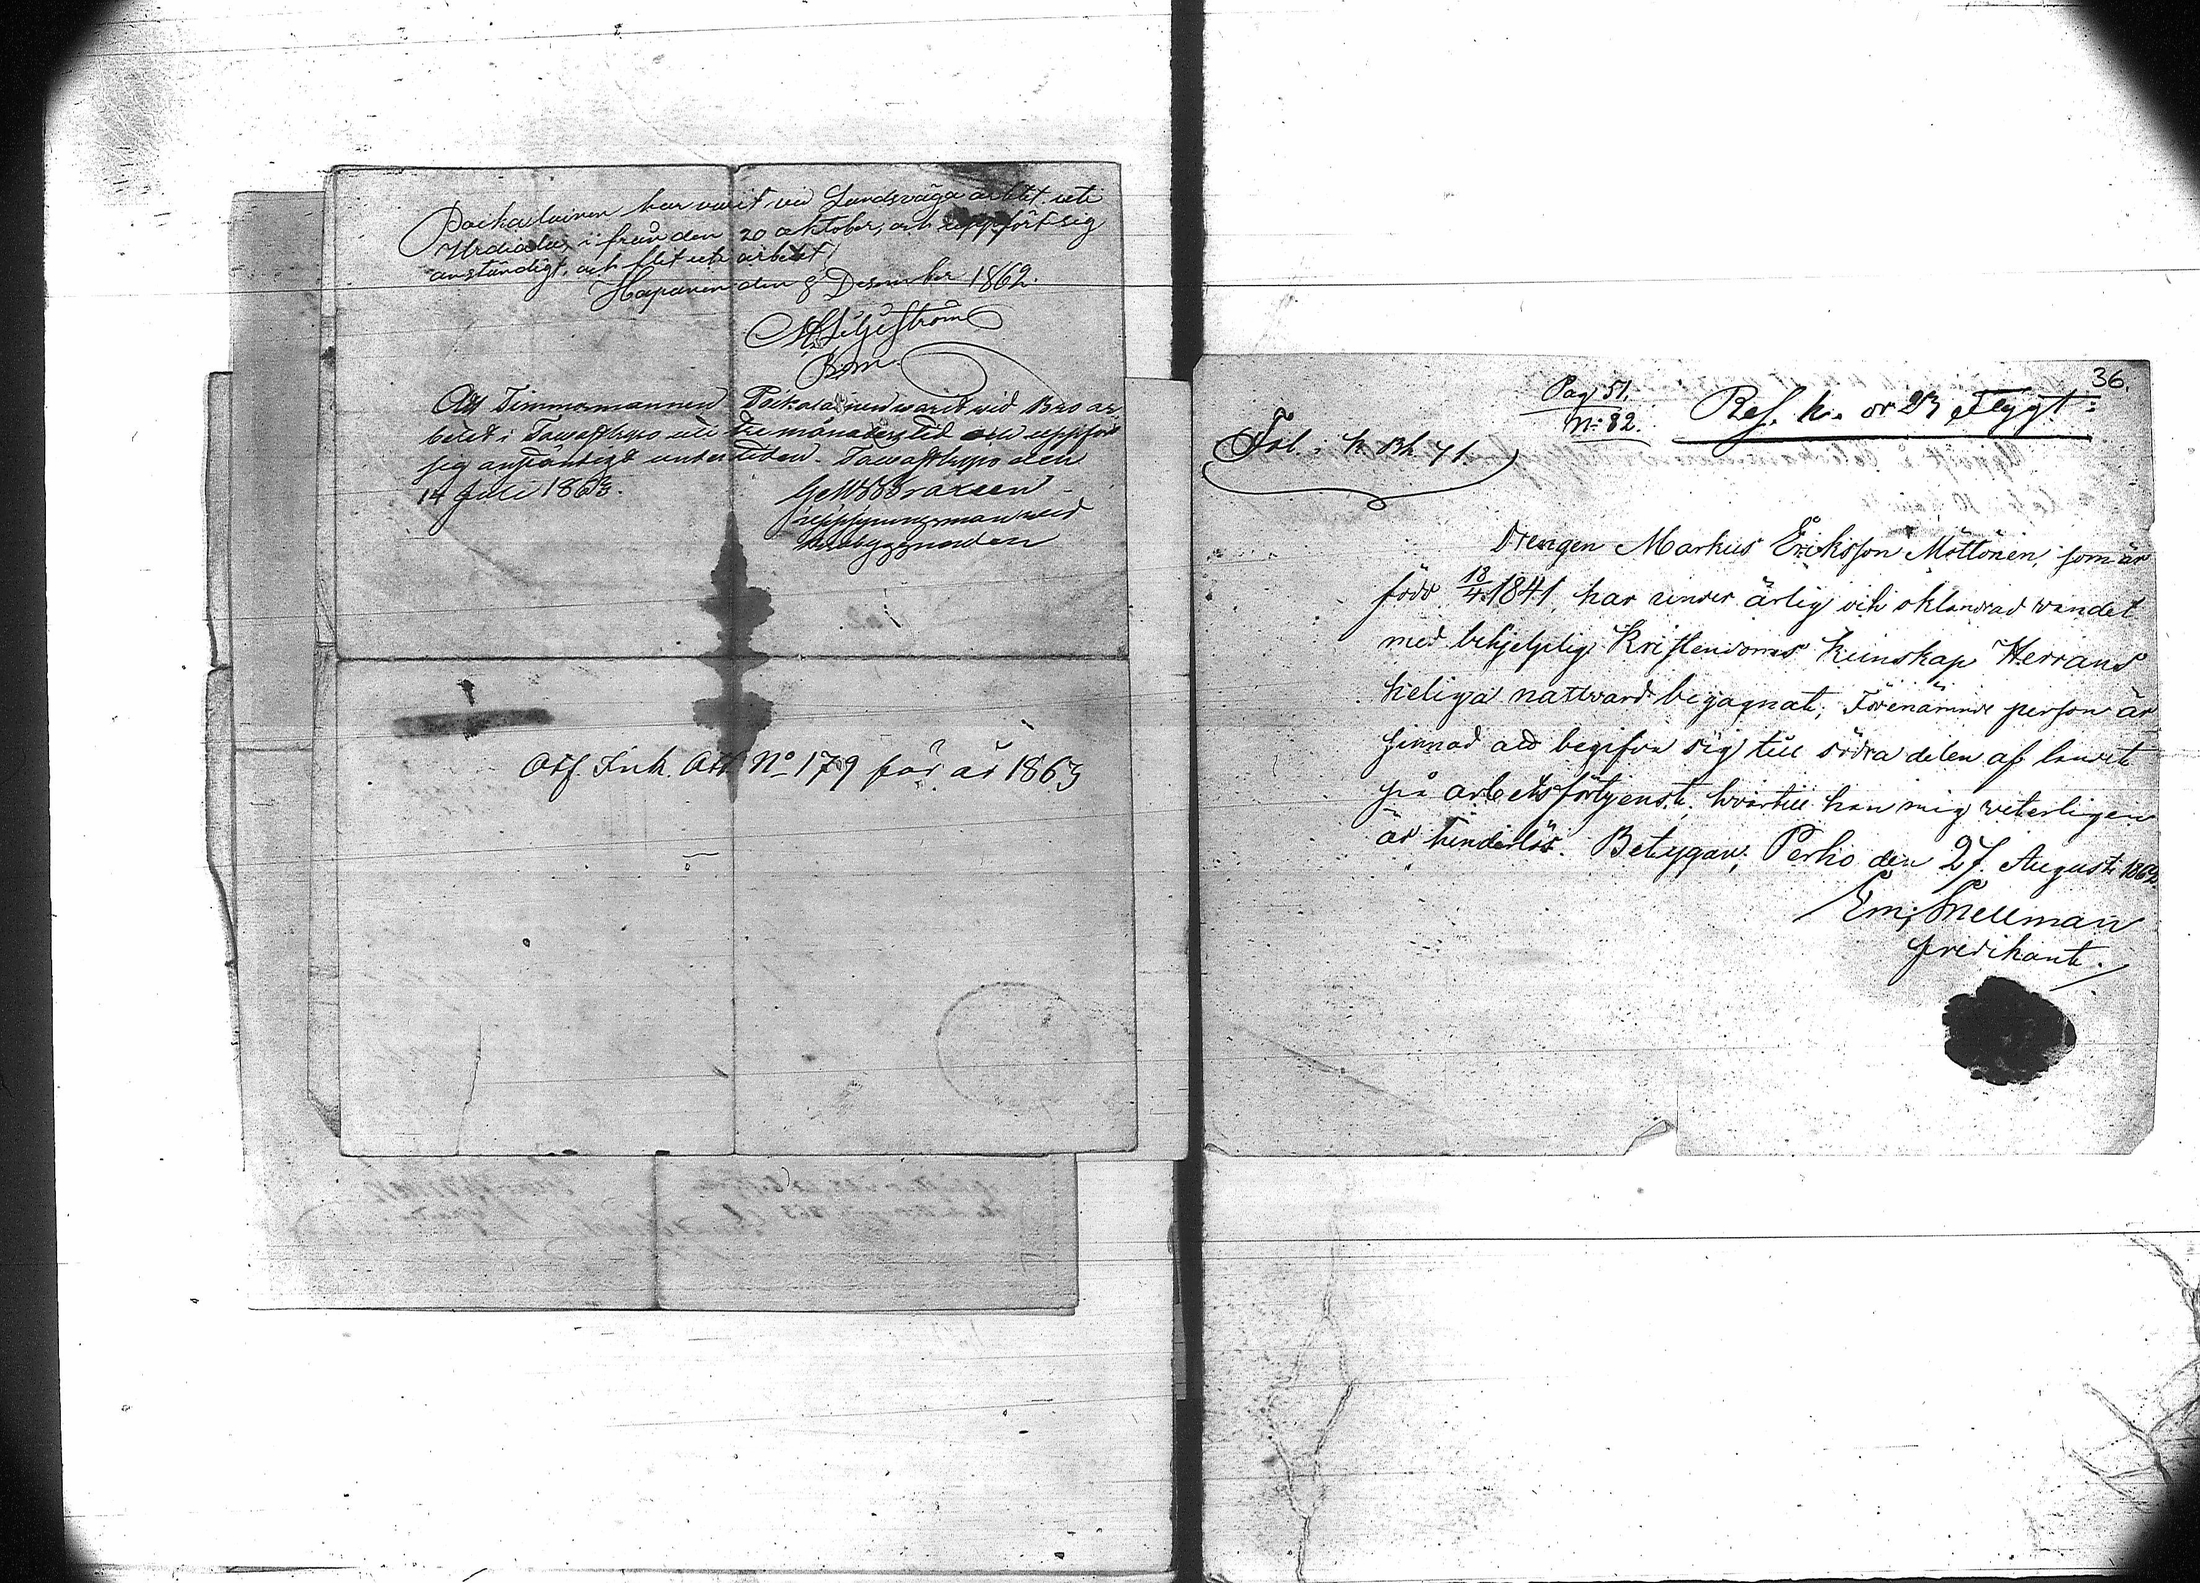 har varit vid Landsväga arbetet uti
i från den 20 oktober, och uppfört sig
anständigt, och flit uti arbetet
den 8 Desember 1862.
Att Timmermannen warit wid Bro ar
betet i Tawastkyro uti tre månaders tid och uppför
sig anständigt under tiden. Tawastkyro den
14 Juli 1863.
Att No 179 för år 1863
36.
Pag 51.
No 82.
Flyggt
Drengen Markus Eriksson Möttönen, som är
född 13/4 1841, har under ärlig och oklandrad wandel
med behjelplig Kristendoms kunskap Herrans
heliga nattward begagnat; Förenämnde person är
sinnad att begifva sig till södra delen af landet
på arbetsförtjenst, hwartill han mig weterligen
är hinderlös. Betygar; Perho den 27 Augusti 1862.
Em; Snellman
predikant.